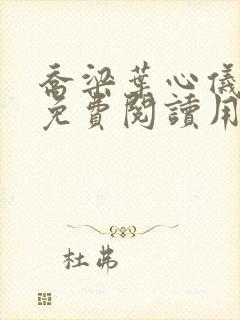 喬梁葉心儀
免費閱讀用
杜弗